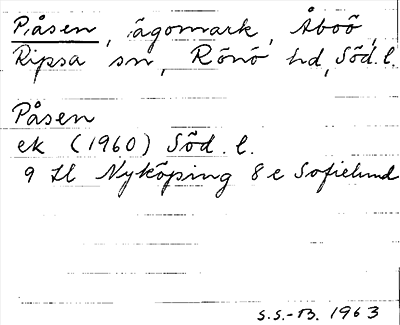 Påsen, ägomark, Åboö,
Ripsa sn, Rönö hd, Söd. l.
Påsen
ek (1960) Söd. l.
9 H Nyköping 8 e Sofielund
S.S.-B. 1963